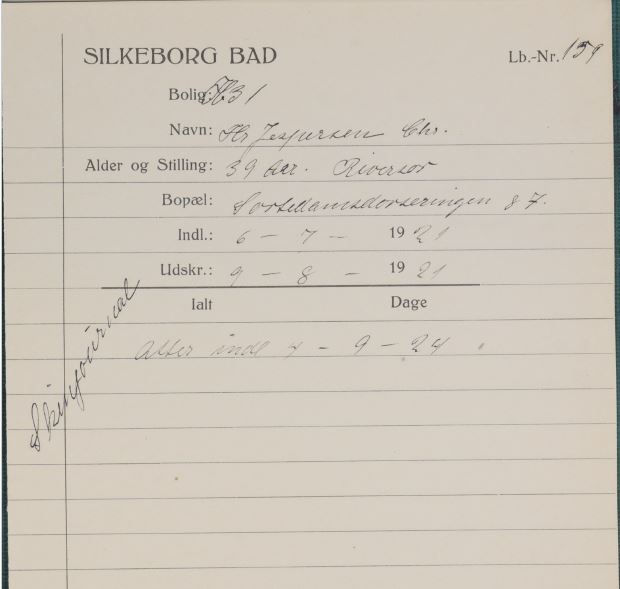 SILKEBORG BAD
Lb.-Nr. 159
Bolig: H31
Navn: Hr Jespersen Chr.
Alder og Stilling: 39 Aar. Revisor
Bopæl: Sortedamsdosseringen 87.
Indl.: 6 - 7 - 1921
Udskr.: 9 - 8 - 1921
Ialt Dage
Atter indl 4 - 9 - 24